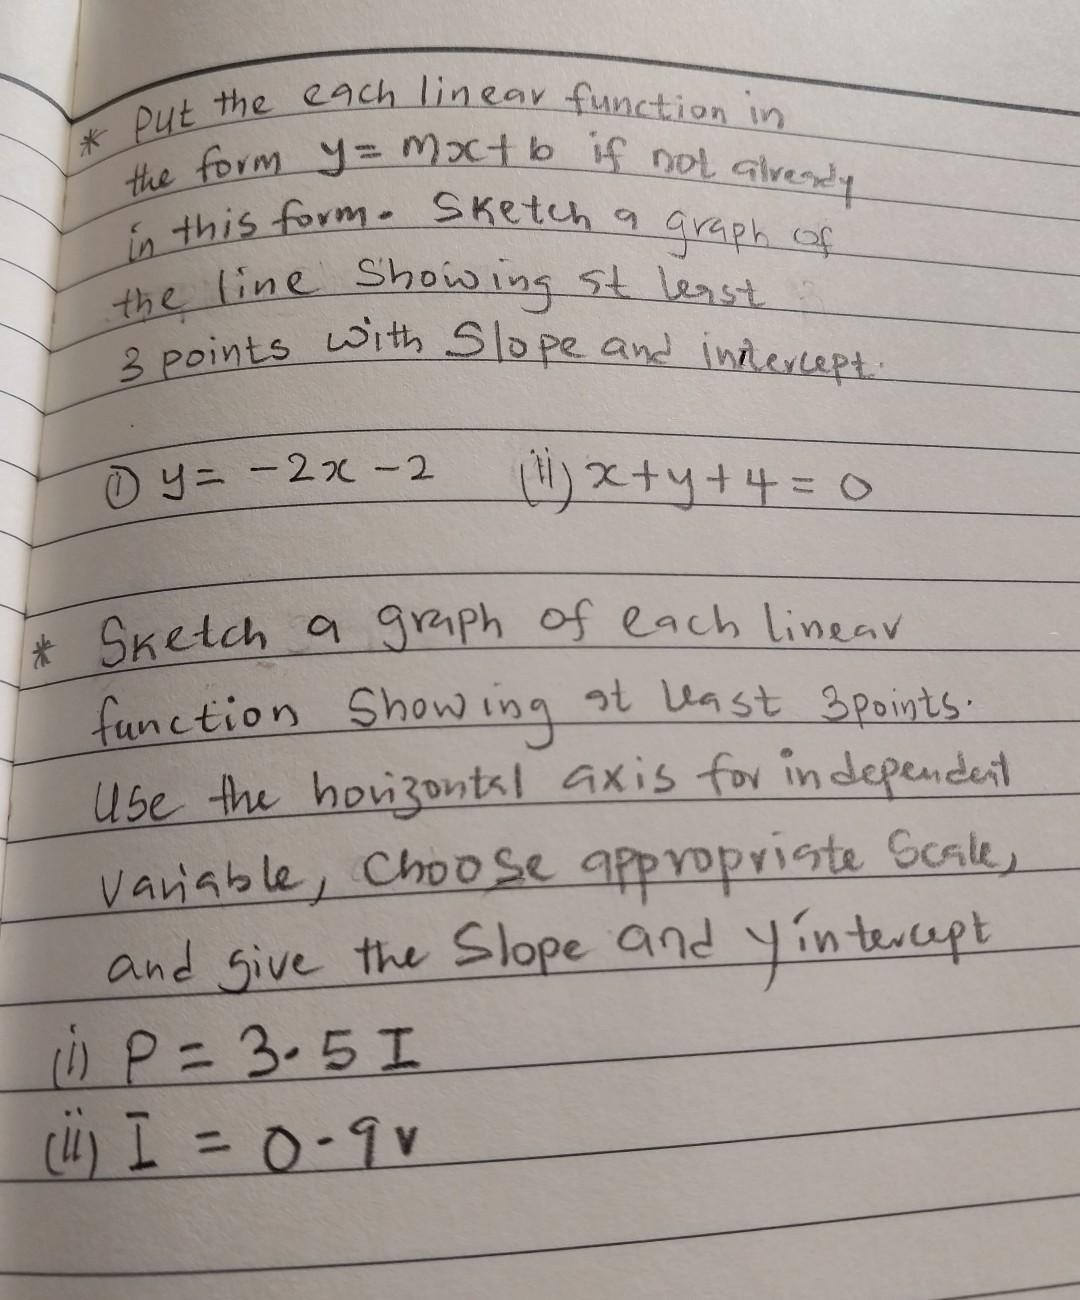 * Put the each linear function in
the form y = mx + b if not already
in this form. Sketch a graph of
the line showing st least
3 points with Slope and intercept.
① y = -2x - 2 (ii) x + y + 4 = 0
* Sketch a graph of each linear
function Showing at least 3points.
Use the horizontal axis for independent
variable, Choose appropriate Scale,
and give the Slope and y intercept
(i) P = 3.5 I
(ii) I = 0.9 v